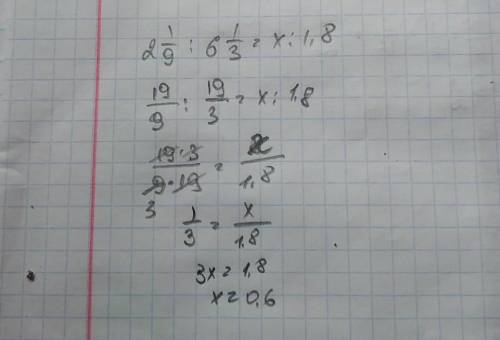 2 1/9 : 6 1/3 = x : 1,8
19/9 : 19/3 = x : 1,8
19·3/9·19 = x/1,8
3
1/3 = x/1,8
3x = 1,8
x = 0,6